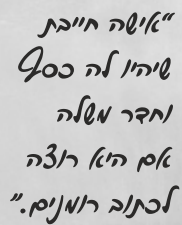 "אישה חייבת
שיהיו לה כסף
וחדר משלה
אם היא רוצה
לכתוב רומנים."